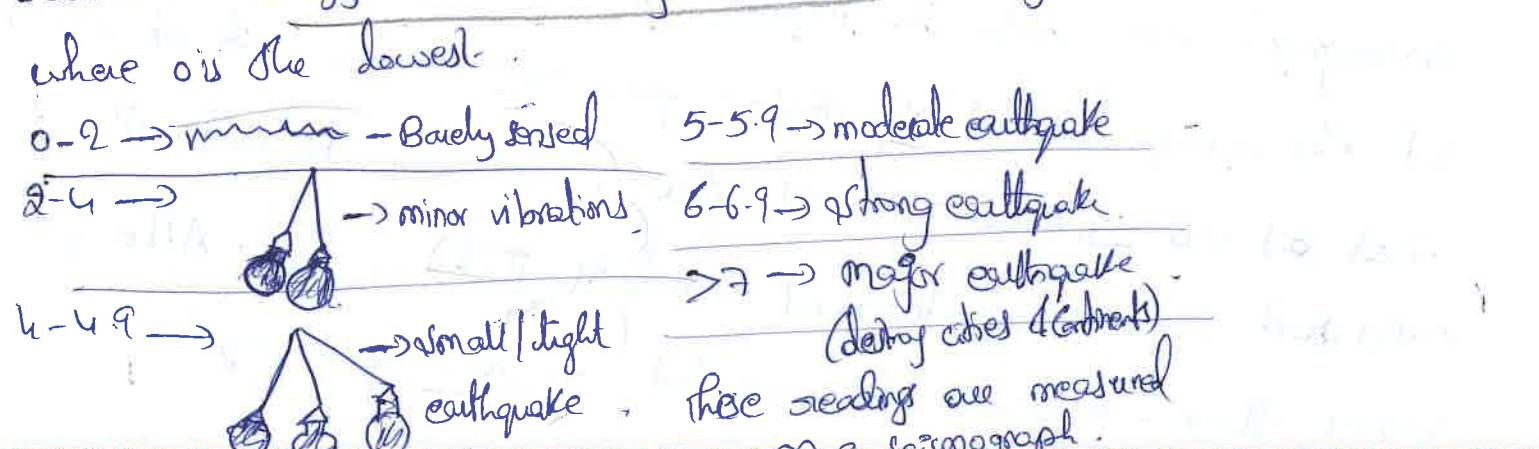 where 0 is the lowest.
0-2 → - Barely sensed
2-4 → → minor vibrations.
4-4.9 → → small/light
earthquake.
5-5.9 → moderate earthquake
6-6.9 → strong earthquake.
>7 → major earthquake.
(destroy cities & continents)
These readings are measured
on a seismograph.